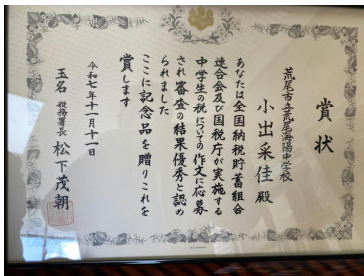 賞状
荒尾市立荒尾海陽中学校
小出采佳殿
あなたは全国納税貯蓄組合
連合会及び国税庁が実施する
中学生の税についての作文に応募
され審査の結果優秀と認め
られました
ここに記念品を贈りこれを
賞します
令和七年十一月十一日
玉名税務署長 松下茂朝